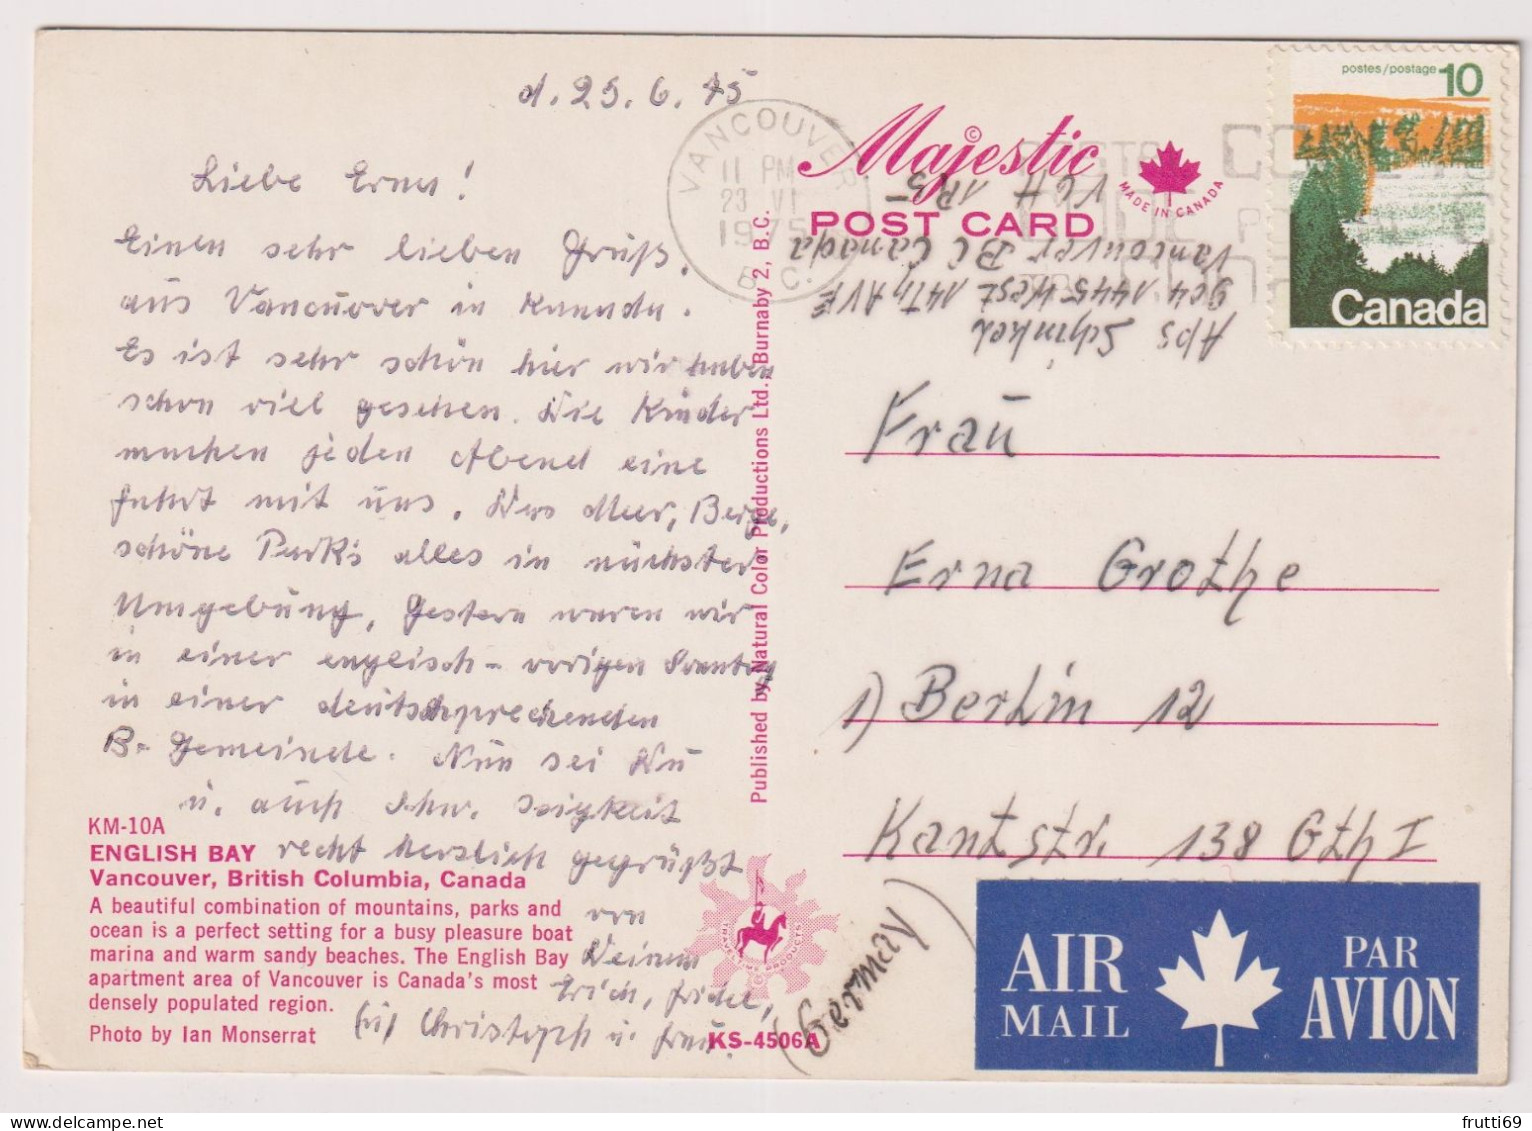 d. 25. 6. 75
Liebe Erna!
Einen sehr lieben Gruß
aus Vancouver in Kanada.
Es ist sehr schön hier wir haben
schon viel gesehen. Die Kinder
machen jeden Abend eine
Fahrt mit uns. Das Meer, Berge,
schöne Park's alles in nächster
Umgebung. Gestern waren wir
in einer englisch - vorigen Sonntag
in einer deutschsprechenden
B. Gemeinde. Nun sei Du
u. auch Schw.
recht herzlich gegrüßt
von
Deinem
Erich, Friedel,
Christoph u. Frau.
KM-10A
ENGLISH BAY
Vancouver, British Columbia, Canada
A beautiful combination of mountains, parks and
ocean is a perfect setting for a busy pleasure boat
marina and warm sandy beaches. The English Bay
apartment area of Vancouver is Canada's most
densely populated region.
Photo by Ian Monserrat
KS-4506A
TRAVELTIME PRODUCTS
Published by Natural Color Productions Ltd., Burnaby 2, B.C.
VANCOUVER
11 PM
23 VI
1975
B. C.
Majestic ©
POST CARD
MADE IN CANADA
postes/postage 10
Canada
Abs Schinkel
904 1445 West 14Th AVE
Vancouver BC Canada
V6H 1R5
Frau
Erna Grothe
1) Berlin 12
Kantstr. 138 Gth I
(Germany)
AIR MAIL
PAR AVION
frutti69